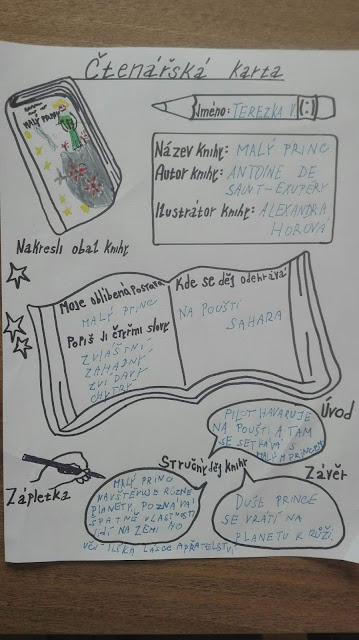 Čtenářská karta
MALÝ PRINC
Jméno: TEREZKA V.
Název knihy: MALÝ PRINC
Autor knihy: ANTOINE DE
SAINT-EXUPÉRY
Ilustrátor knihy: ALEXANDRA
HOROVA
Nakresli obal knihy
Moje oblíbená postava
MALÝ PRINC
Popiš ji čtyřmi slovy
ZVLÁŠTNÍ
ZÁHADNÝ
ZVÍDAVÝ
CHYTRÝ
Kde se děj odehrává
NA POUŠTI
SAHARA
Stručný děj knihy
Úvod
PILOT HAVARUJE
NA POUŠTI A TAM
SE SETKÁVÁ S
MALÝM PRINCEM
Zápletka
MALÝ PRINC
NAVŠTĚVUJE RŮZNÉ
PLANETY, POZNÁVÁ
ŠPATNÉ VLASTNOSTI
LIDÍ NA ZEMI HO
UČÍ LIŠKA LÁSCE A PŘÁTELSTVÍ
Závěr
DUŠE PRINCE
SE VRÁTÍ NA
PLANETU K RŮŽI.